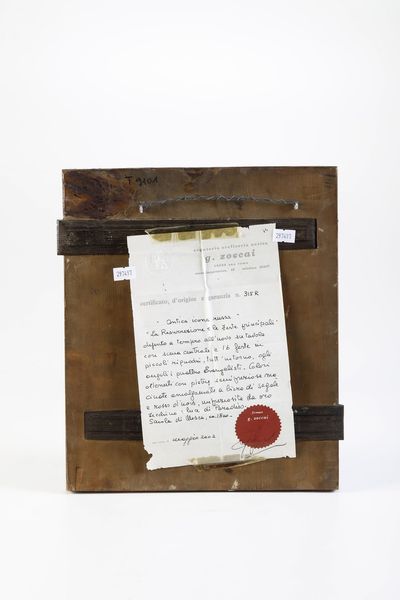 T 9101
argenteria oreficeria antica
g. zoccai
297437
297437
certificato, d'origine e garanzia n. 315 R
"Antica icona russa"
"La Resurrezione e le feste principali"
dipinto a tempera all'uovo su tavola
con scena centrale e 12 feste in
piccoli riquadri, tutt'intorno, agli
angoli i quattro Evangelisti. Colori
ottenuti con pietre semipreziose ma
cinate amalgamate a birra di segale
e rosso d'uovo, impreziosita da oro
zecchino: luce di Paradiso.
Scuola di Mosca,
maggio 2002
firmato
g. zoccai